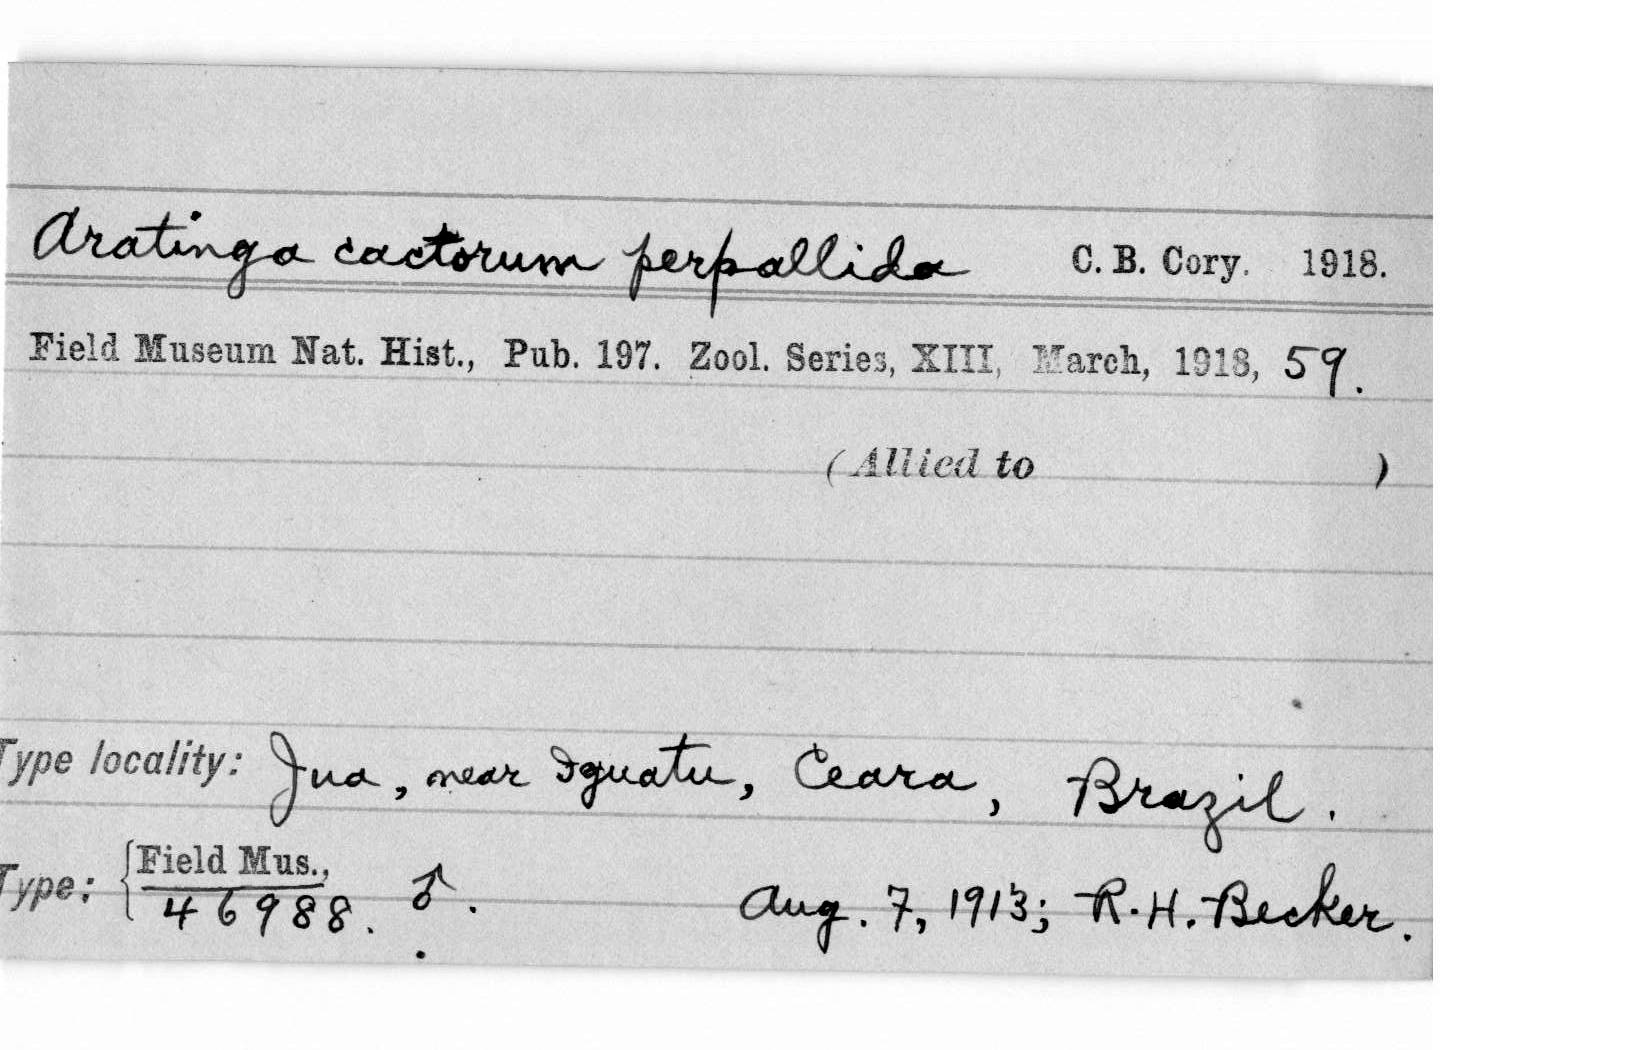 Aratinga cactorum perpallida C. B. Cory. 1918.
Field Museum Nat. Hist., Pub. 197. Zool. Series, XIII, March, 1918, 59.
(Allied to )
Type locality: Jua, near Iguatu, Ceara, Brazil.
Type: {Field Mus., 
46988. ♂. Aug. 7, 1913; R. H. Becker.